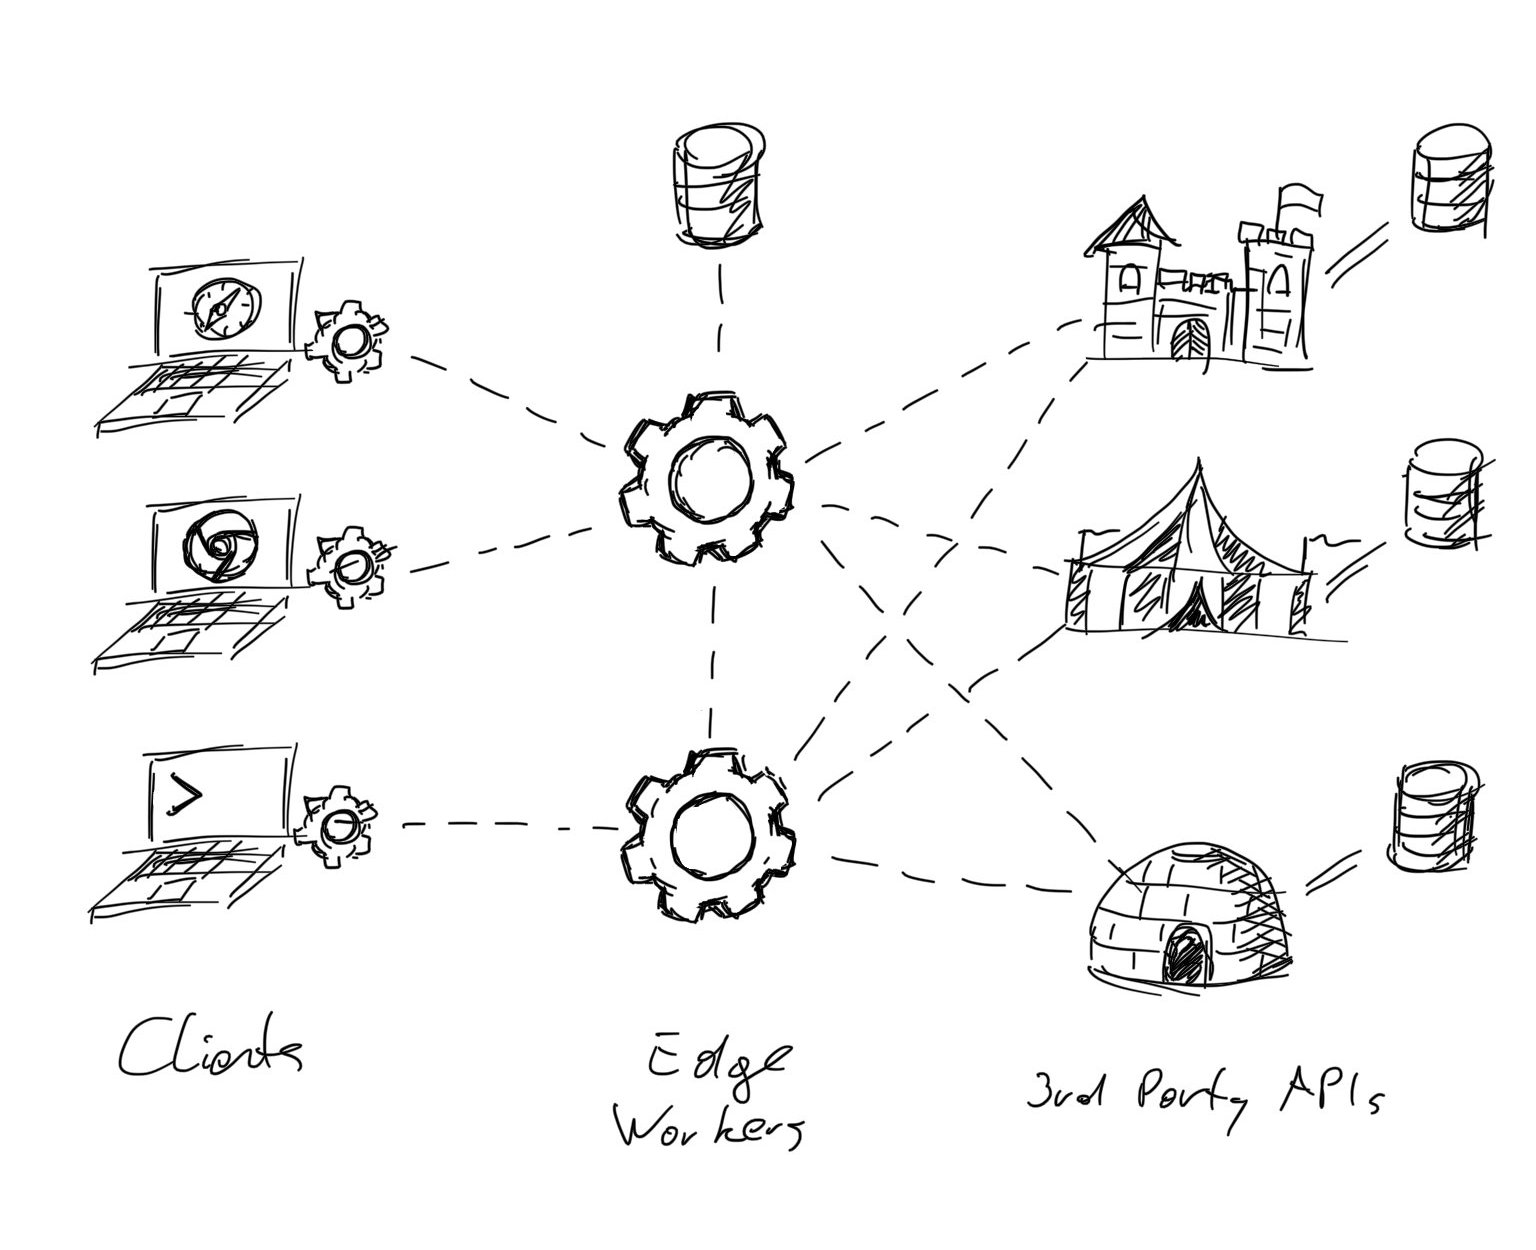 >
Clients
Edge
Workers
3rd Party APIs